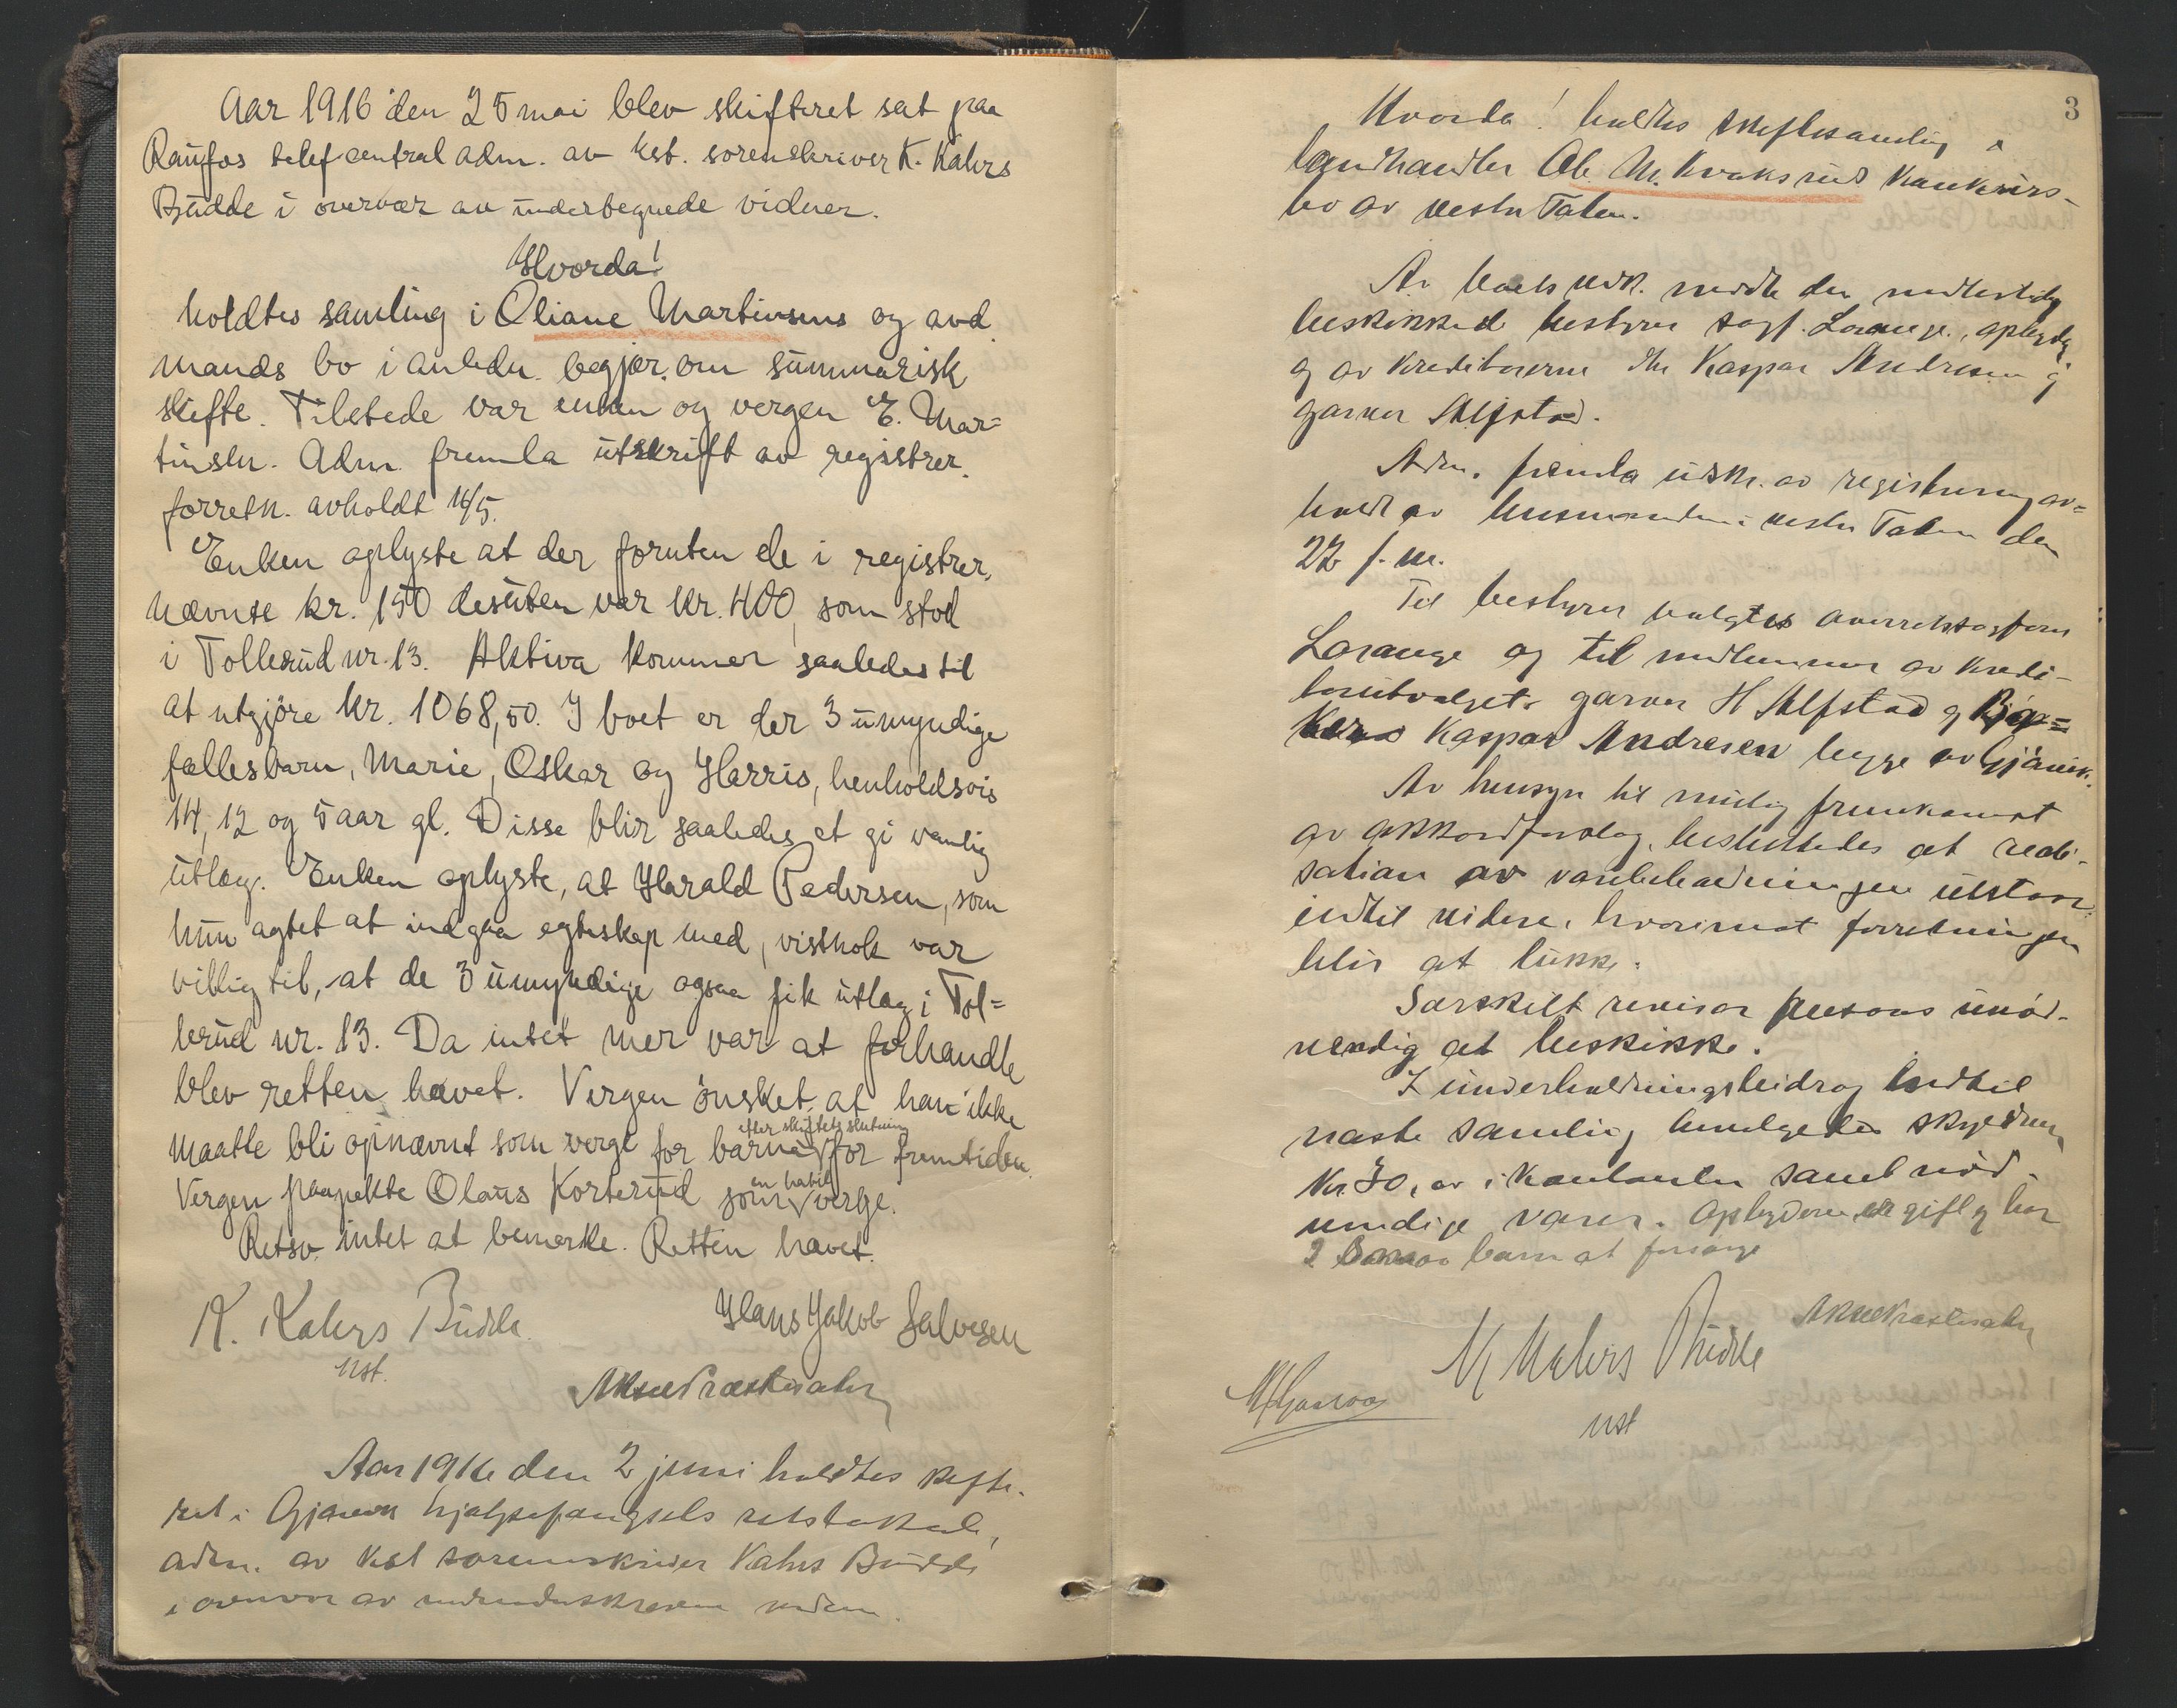 Aar 1916 den 25 mai blev skifteret sat paa
Raufos telefcentral adm. av kst. sorenskriver K. Kahrs
Budde i overvær av underbegnede vidner.
Hvorda!
holdtes samling i Oliane Martinsens og avd.
mands bo i anledn. begjær. om summarisk
skifte. Tilstede var enken og vergen E. Mar=
tinsen. Adm. fremla utskrift av registrer.
forretn. avholdt 16/5.
Enken oplyste at der foruten de i registrer.
nævnte kr. 150 desuten var kr. 400, som stod
i Tollerud nr. 13. Aktiva kommer saaledes til
at utgjøre kr. 1068,50. I boet er der 3 umyndige
fællesbarn, Marie, Oskar og Harris, henholdsvis
14, 12 og 5 aar gl. Disse blir saaledes at gi vanlig
utlæg. Enken oplyste, at Harald Pedersen, som
hun agtet at indgaa egteskap med, visthok var
villig til, at de 3 umyndige ogsaa fik utlæg i Tol=
lerud nr. 13. Da intet mer var at forhandle
blev retten hævet. Vergen ønsket, at han ikke
efter skiftets slutning
maatte bli opnævnt som verge for barna for fremtiden.
en habil
Vergen paapekte Olaus Korterud som verge.
Retsv. intet at bemerke. Retten hævet.
K. Kahrs Budde Hans Jakob Salvesen
kst.
Aksel Præstesæter
Aar 1916 den 2 juni holdtes skifte-
ret i Gjøvik hjælpefængsels retslokale,
adm. av kst sorenskriver Kahrs Budde
i overvær av vidner.
3
Hvorda! holdtes skiftesamling i
landhandler Ole M. Kvaksrud konkurs-
bo av vestre Toten.
Av boets vedk. mødte den midlertidig
beskikkede bestyrer sagf. Lorange, opbyder
og av kreditorerne Kaspar Andresen og
garver Alfstad.
Adm. fremla utskr. av registrering av=
holdt av lensmanden i vestre Toten den
22 f. m.
Til bestyrer valgtes overretssagfører
Lorange og til medlemmer av kredi-
torutvalget garver H Alfstad og
Kaspar Andresen begge av Gjøvik.
Av hensyn til mulig fremkomst
av akkordforslag, besluttedes at reali-
sation av varebeholdningen utstaar
indtil videre, hvorimot forretningen
blir at lukke.
Særskilt revisor fandtes unød-
vendig at beskikke.
I underholdningsbidrag indtil
næste samling bevilgedes skyldneren
kr. 70, i kontanter samt nød-
vendige varer. Opbyderen er gift og har
2 barn at forsørge
K Kahrs Budde Aksel Præstesæter
kst